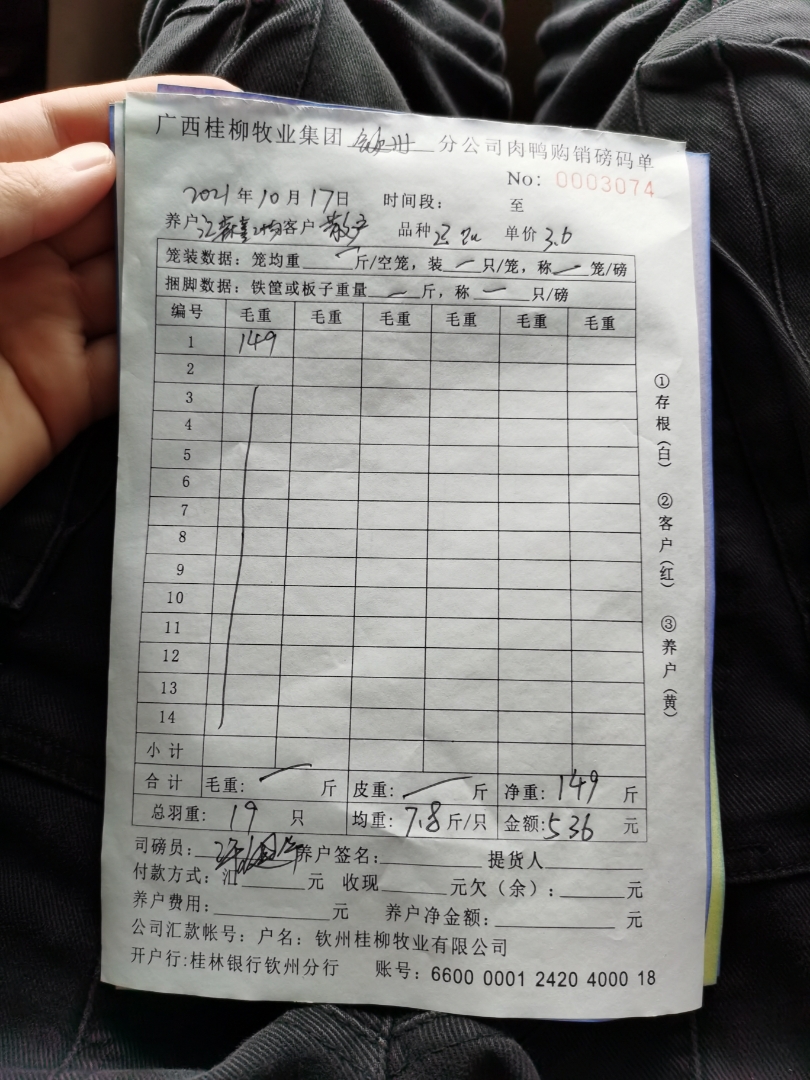 广西桂柳牧业集团 钦州 分公司肉鸭购销磅码单
No: 0003074
2021年10月17日 时间段: 至
养户 客户 散户 品种 单价 3.6
笼装数据: 笼均重 一 斤/空笼, 装 一 只/笼, 称 一 笼/磅
捆脚数据: 铁筐或板子重量 一 斤, 称 一 只/磅
编号 毛重 毛重 毛重 毛重 毛重 毛重
1 149
2
3
4
5
6
7
8
9
10
11
12
13
14
小计
合计 毛重: 一 斤 皮重: 一 斤 净重: 149 斤
总羽重: 19 只 均重: 7.8 斤/只 金额: 536 元
司磅员: 养户签名: 提货人
付款方式: 汇 元 收现 元欠(余): 元
养户费用: 元 养户净金额: 元
公司汇款帐号: 户名: 钦州桂柳牧业有限公司
开户行: 桂林银行钦州分行 账号: 6600 0001 2420 4000 18
①存根(白) ②客户(红) ③养户(黄)